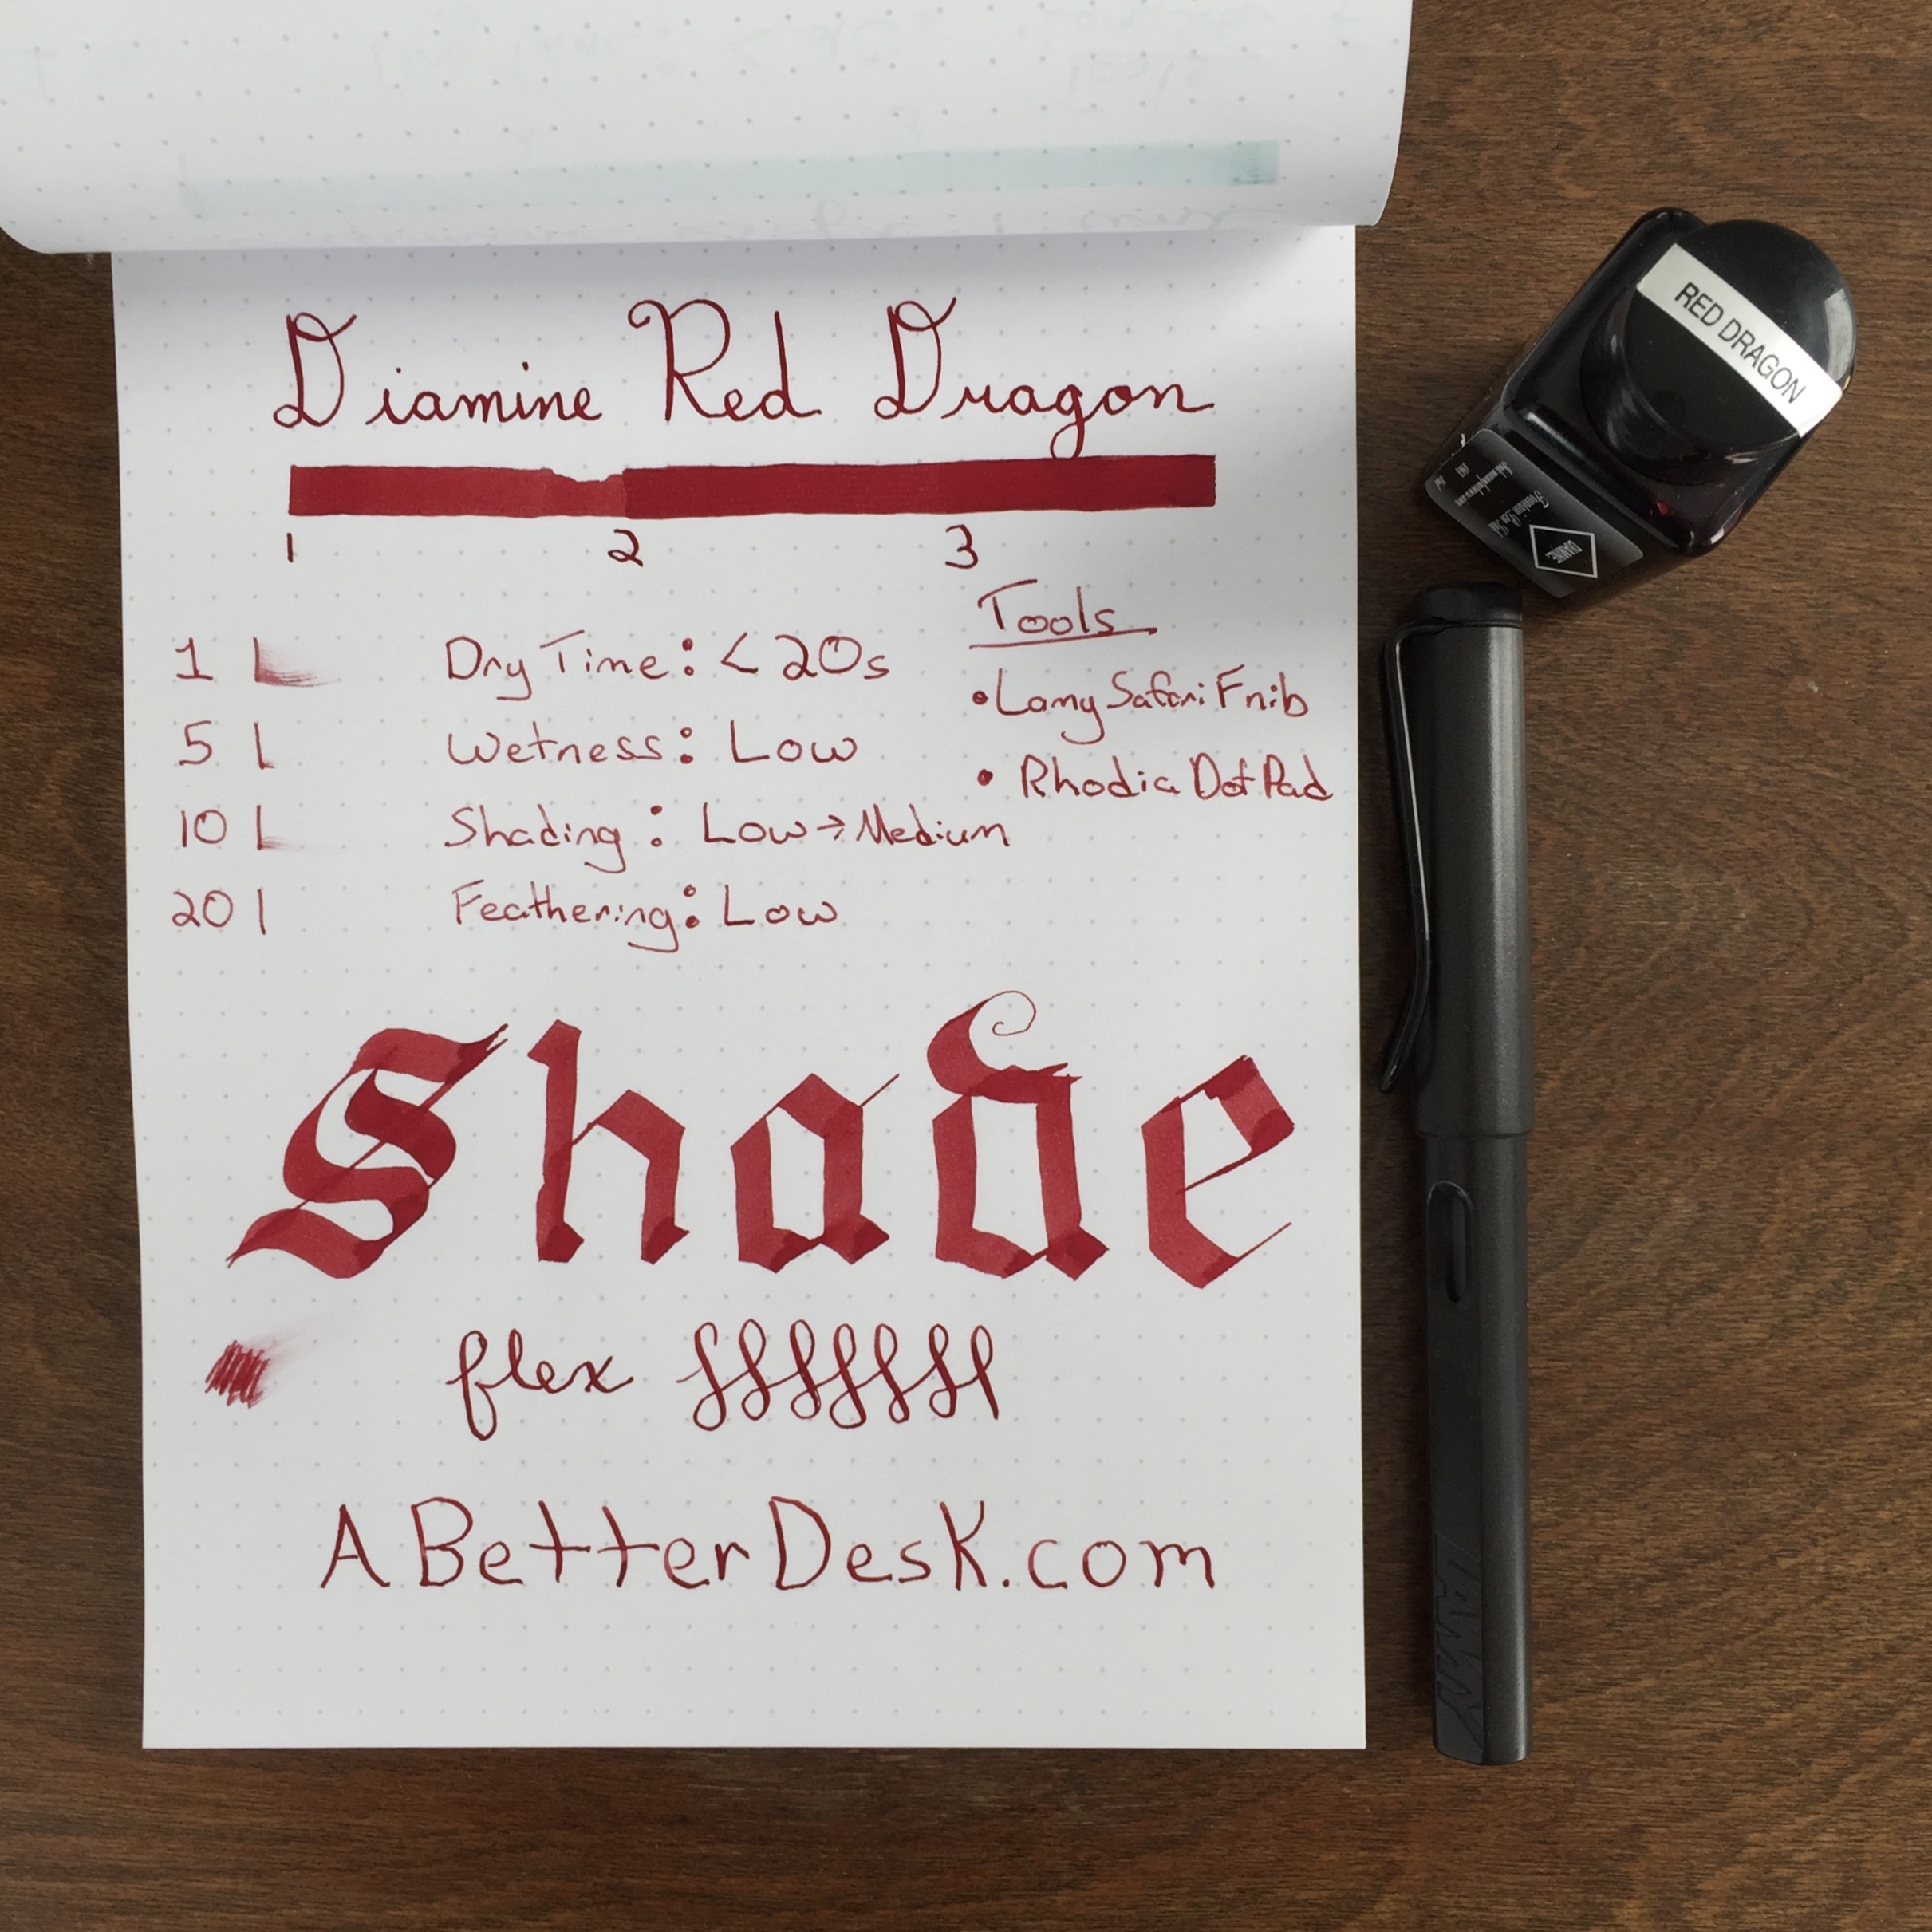 Diamine Red Dragon
1 2 3
Tools
1 | Dry Time: < 20s
• Lamy Safari F nib
5 | Wetness: Low
• Rhodia Dot Pad
10 | Shading: Low → Medium
20 | Feathering: Low
Shade
flex fffffff
ABetterDesk.com
RED DRAGON
DIAMINE
Fountain Pen Ink
LAMY